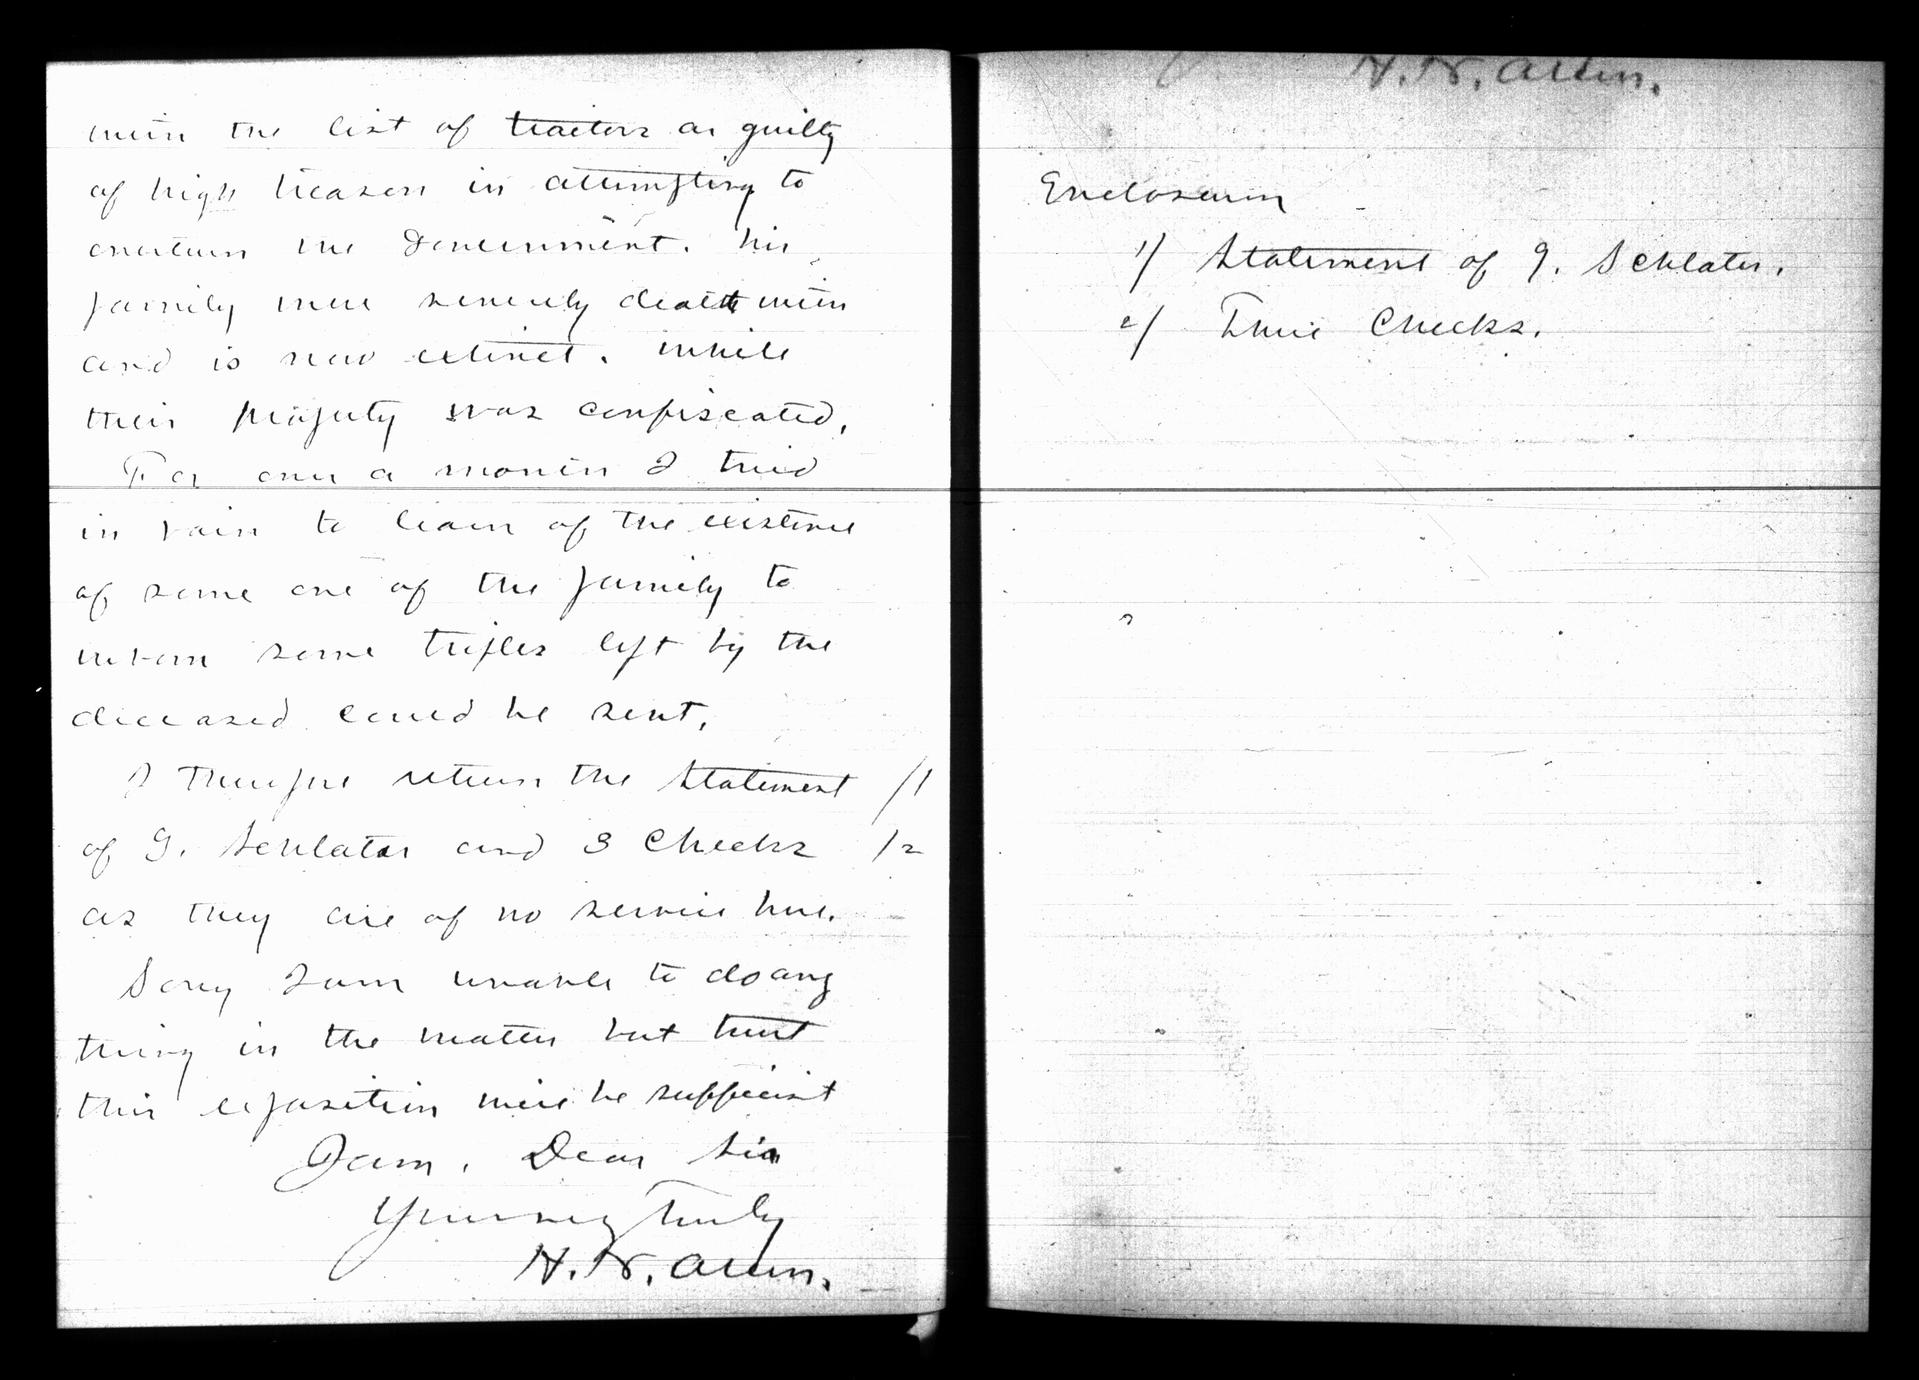 with the list of traitors as guilty
of high treason in attempting to
overturn the Government. His
family were severely dealt with
and is now extinct. While
their property was confiscated.
For over a month I tried
in vain to learn of the existence
of some one of the family to
whom some trifles left by the
deceased could be sent.
I therefore return the Statement /1
of G. Schlater and 3 Checks /2
as they are of no service here.
Sorry I am unable to do any
thing in the matter but trust
this exposition will be sufficient
I am, Dear Sir
Yours very truly
H. N. Allen.
H. N. Allen.
Enclosures
1/ Statement of G. Schlater.
2/ Three Checks.